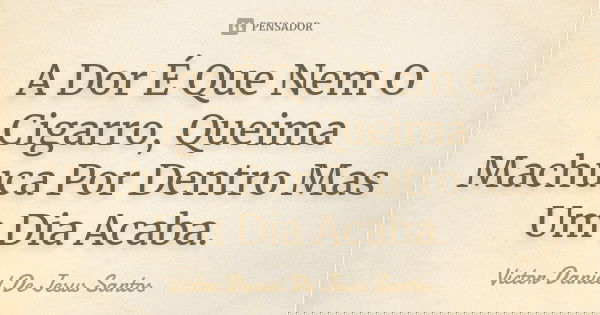 PENSADOR
A Dor É Que Nem O
Cigarro, Queima
Machuca Por Dentro Mas
Um Dia Acaba.
Victor Daniel De Jesus Santos